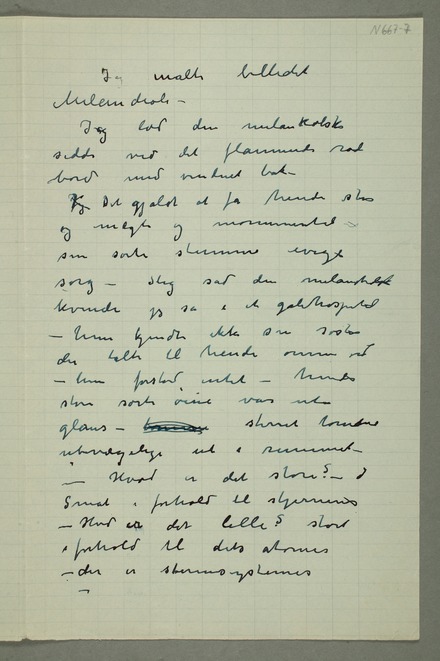 N 667-7
Jeg malte billedet
Melankoli –
Jeg lod den melankolske
sidde ved det flammende rød
bord med vinduet bak
Det gjaldt at få hende stor
og mægtig og monumental
som sorte stumme evige
sorg – Jeg sad den melankolske
kvinde jeg så i et galehospital
– hun kjendte ikke sin søster
der talte til hende
– hun forstod intet – hendes
store sorte øine var uten
glans – stirret tomme
ubevægelige ut i rummet –
– Hvad er det store? –
Smat i forhold til stjernerne
– Hvad er det lille? stort
i forhold til dets atomer
– der er stjernesystemer
–